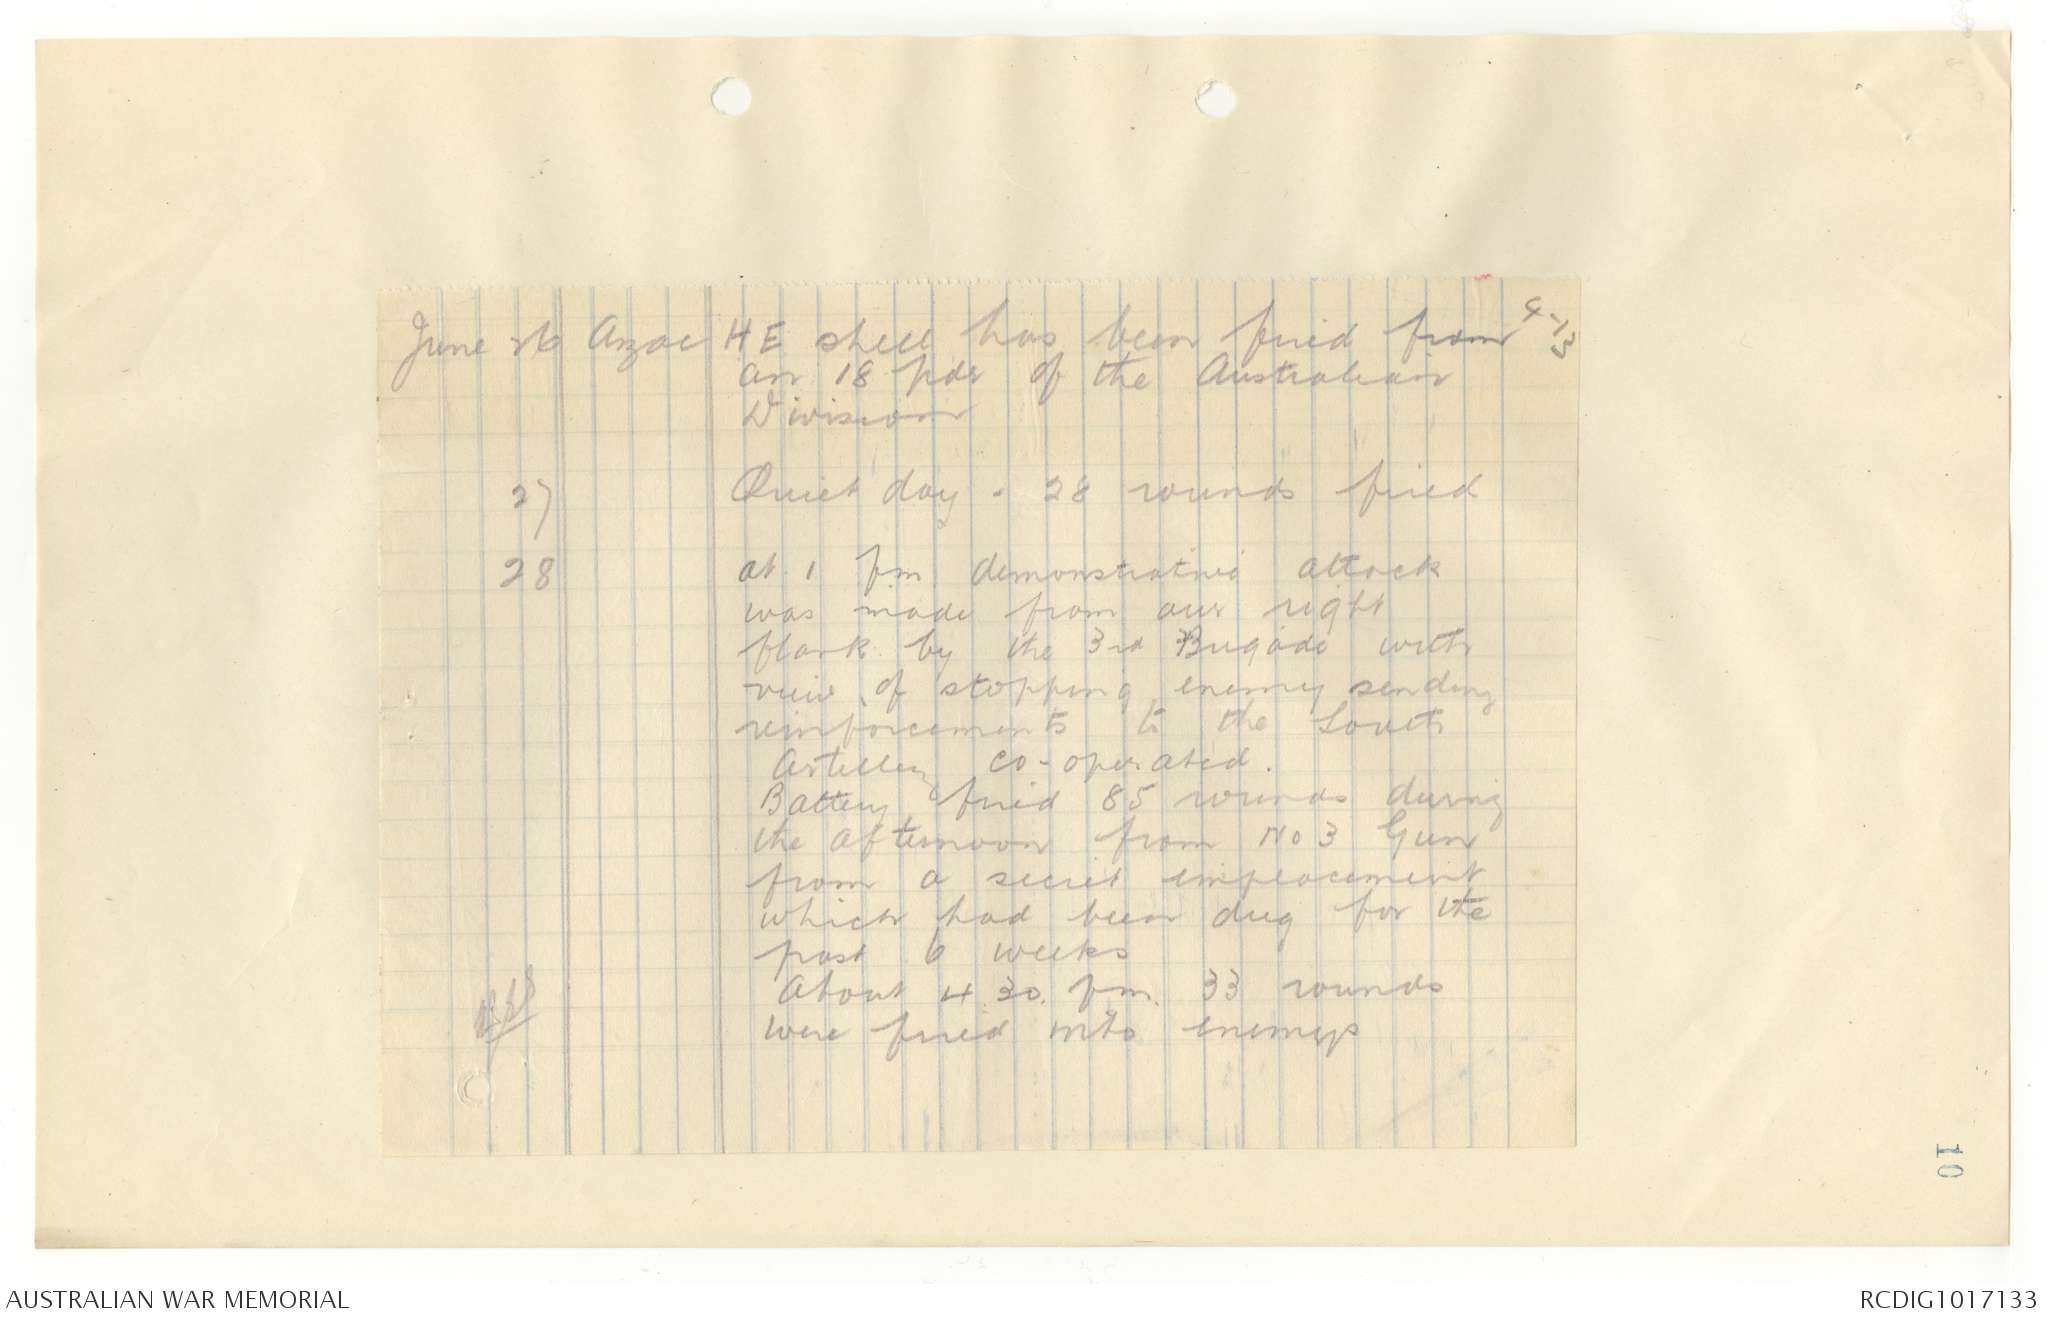 June 26 Anzac HE shell has been fired from
4-13
an 18 pdr of the Australian
Division
27 Quiet day - 28 rounds fired
28 at 1 pm demonstrative attack
was made from our right
flank by the 3rd Brigade with
view of stopping enemy sending
reinforcements to the South
Artillery co-operated.
Battery fired 85 rounds during
the afternoon from No 3 Gun
from a secret emplacement
which had been dug for the
past 6 weeks
About 4 30. pm. 33 rounds
were fired into enemys
10
AUSTRALIAN WAR MEMORIAL
RCDIG1017133